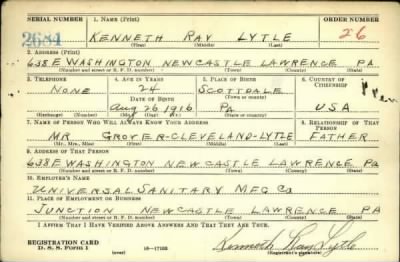 SERIAL NUMBER 1. NAME (Print) ORDER NUMBER
2684 KENNETH RAY LYTLE 26
(First) (Middle) (Last)
2. ADDRESS (Print)
638 E WASHINGTON NEWCASTLE LAWRENCE PA
(Number and street or R. F. D. number) (Town) (County) (State)
3. TELEPHONE 4. AGE IN YEARS 5. PLACE OF BIRTH 6. COUNTRY OF CITIZENSHIP
NONE 24 SCOTTDALE
DATE OF BIRTH (Town or county)
Aug 26 1916 PA USA
(Exchange) (No.) (Mo.) (Day) (Yr.) (State or country)
7. NAME OF PERSON WHO WILL ALWAYS KNOW YOUR ADDRESS 8. RELATIONSHIP OF THAT PERSON
MR GROVER-CLEVELAND-LYTLE FATHER
(Mr., Mrs., Miss) (First) (Middle) (Last)
9. ADDRESS OF THAT PERSON
638 E WASHINGTON NEWCASTLE LAWRENCE PA
(Number and street or R. F. D. number) (Town) (County) (State)
10. EMPLOYER'S NAME
UNIVERSAL SANITARY MFG CO
11. PLACE OF EMPLOYMENT OR BUSINESS
JUNCTION NEWCASTLE LAWRENCE PA
(Number and street or R. F. D. number) (Town) (County) (State)
I AFFIRM THAT I HAVE VERIFIED ABOVE ANSWERS AND THAT THEY ARE TRUE.
REGISTRATION CARD
D. S. S. Form 1 (over) 16-17105 Kenneth Ray Lytle
(Registrant's signature)